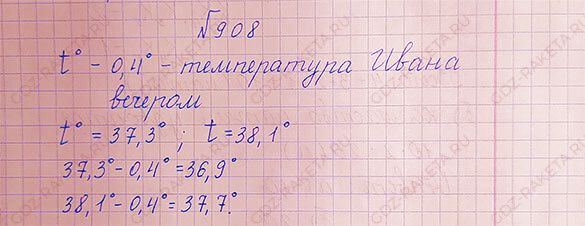 №908
t° - 0,4° - температура Ивана
вечером
t° = 37,3° ; t = 38,1°
37,3° - 0,4° = 36,9°
38,1° - 0,4° = 37,7°.
GDZ-RAKETA.RU